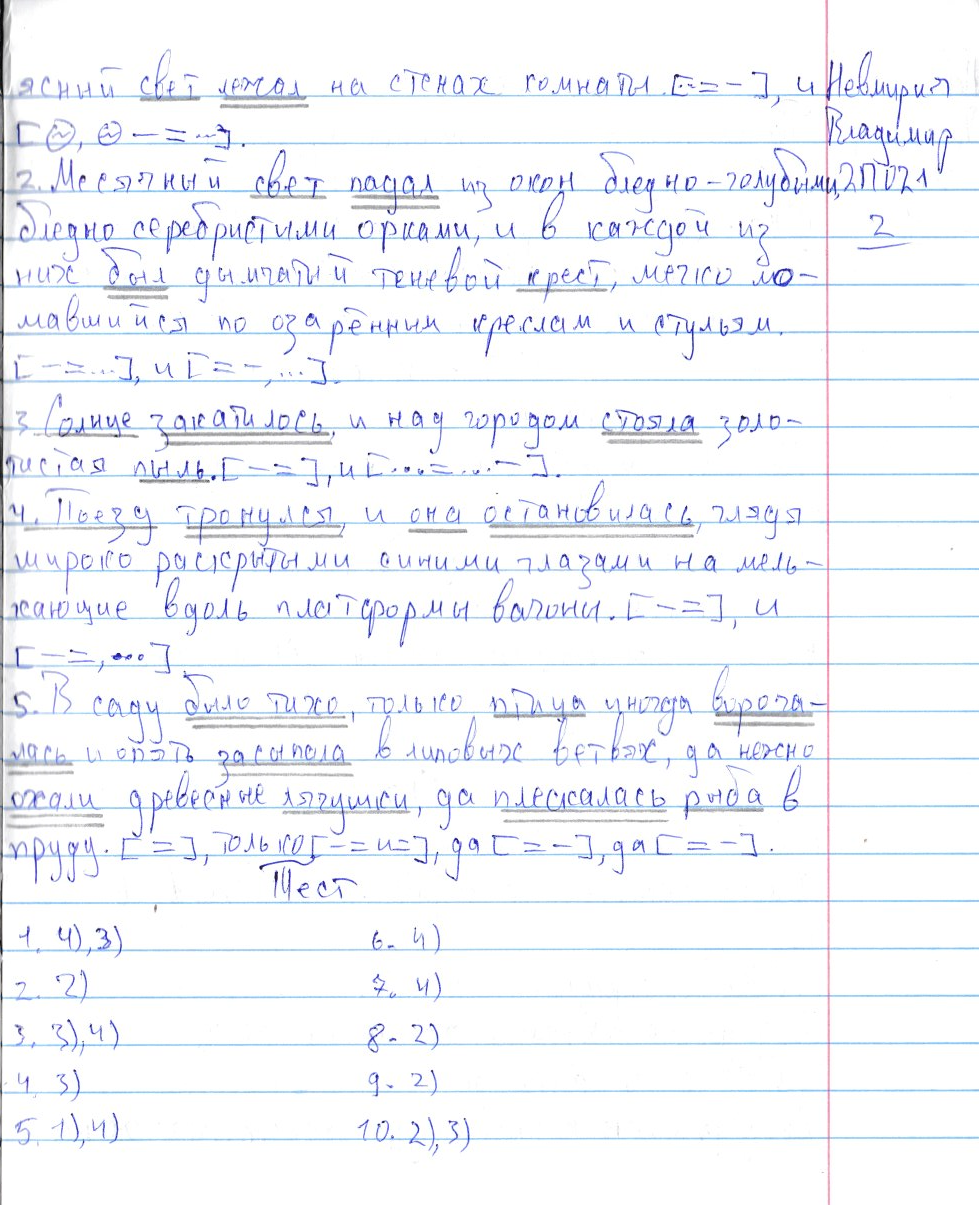 ясный свет лежал на стенах комнаты. [-·=-], и
[~, ~ - = ...].
2. Месячный свет падал из окон бледно-голубыми,
бледно серебристыми арками, и в каждой из
них был дымчатый теневой крест, мягко ло-
мавшийся по озарённым креслам и стульям.
[-=...], и [=-,...].
3 Солнце закатилось, и над городом стояла золо-
тистая пыль. [-=], и [...=...-].
4. Поезд тронулся, и она остановилась, глядя
широко раскрытыми синими глазами на мель-
кающие вдоль платформы вагоны. [-=], и
[-=,...]
5. В саду было тихо, только птица иногда вороча-
лась и опять засыпала в липовых ветвях, да нежно
охали древесные лягушки, да плескалась рыба в
пруду. [=], только [-=и=], да [=-], да [=-].
Тест
1. 4), 3)
2. 2)
3. 3), 4)
4. 3)
5. 1), 4)
6. 4)
7. 4)
8. 2)
9. 2)
10. 2), 3)
Владимир
2ПО21
2